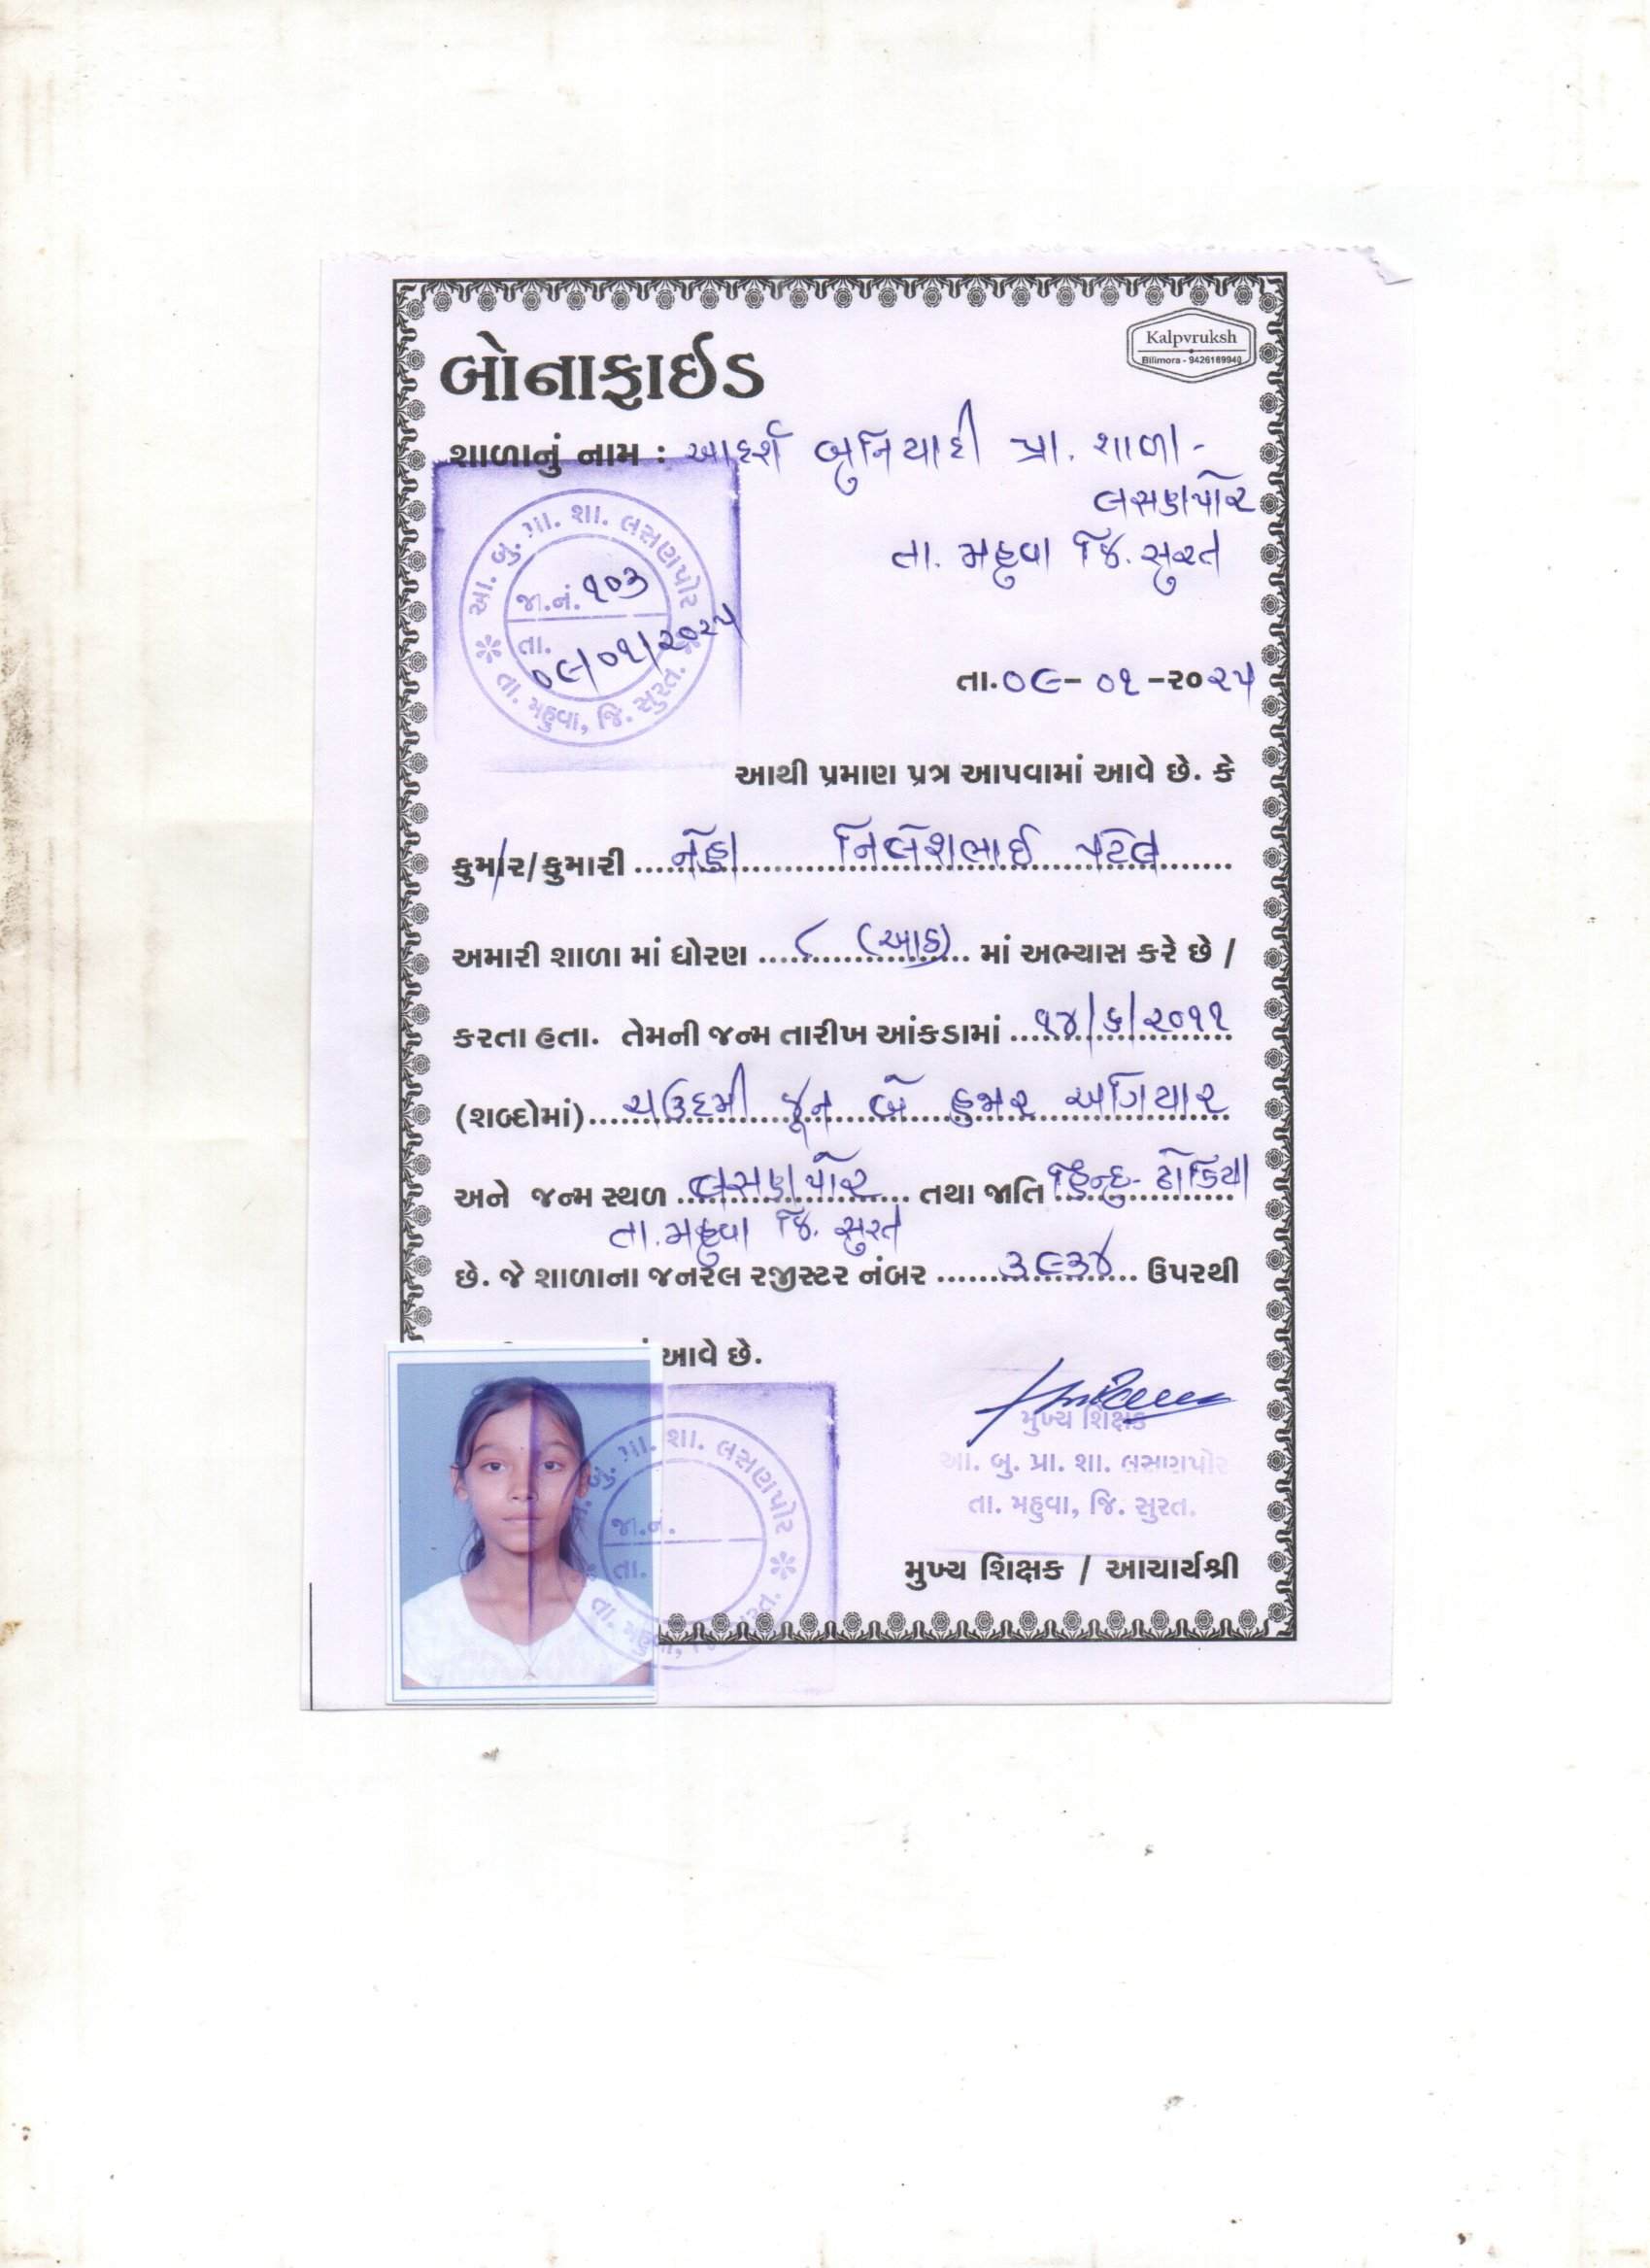 Kalpvruksh
Bilimora - 9426189940
બોનાફાઈડ
શાળાનું નામ : આદર્શ બુનિયાદી પ્રા. શાળા -
લસણપોર
તા. મહુવા જિ. સુરત
આ. બુ. પ્રા. શા. લસણપોર
જા.નં. ૧૦૩
તા. ૦૯/૦૧/૨૦૨૫
તા. મહુવા, જિ. સુરત.
તા.૦૯- ૦૧ -૨૦૨૫
આથી પ્રમાણ પત્ર આપવામાં આવે છે. કે
કુમાર/કુમારી ... નેહા નિલેશભાઈ પટેલ ...
અમારી શાળા માં ધોરણ ... ૮ (આઠ) ... માં અભ્યાસ કરે છે /
કરતા હતા. તેમની જન્મ તારીખ આંકડામાં ... ૧૪/૬/૨૦૧૧
(શબ્દોમાં) ... ચઉદમી જૂન બે હજાર અગિયાર
અને જન્મ સ્થળ ... લસણપોર ... તથા જાતિ હિન્દુ- ઢોડિયા
તા. મહુવા જિ. સુરત
છે. જે શાળાના જનરલ રજીસ્ટર નંબર ... ૩૯૩૪ ... ઉપરથી
આવે છે.
મુખ્ય શિક્ષક
આ. બુ. પ્રા. શા. લસણપોર
તા. મહુવા, જિ. સુરત.
બુ. પ્રા. શા. લસણપોર
જા.નં.
તા.
તા. મહુવા, જિ. સુરત.
મુખ્ય શિક્ષક / આચાર્યશ્રી